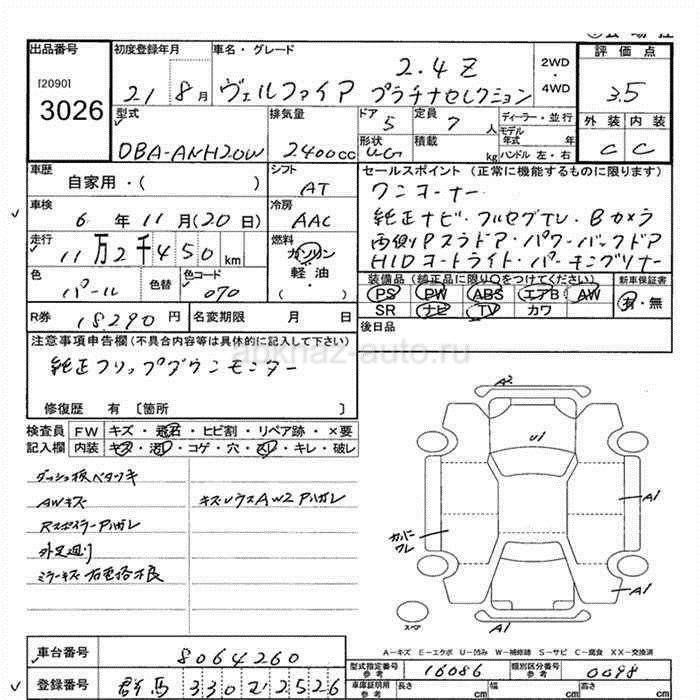 出品番号
[2090]
3026
初度登録年月
21 8月
車名・グレード
2.4Z
ヴェルファイア プラチナセレクション
2WD
・
4WD
評価点
3.5
外装 内装
C C
型式
DBA-ANH20W
排気量
2400cc
ドア
5
定員
7 人
ディーラー・並行
モデル
年式 年
ハンドル 左・右
形状
積載
kg
車歴
自家用・( )
シフト
AT
セールスポイント (正常に機能するものに限ります)
ワンオーナー
純正ナビ・フルセグTV・Bカメラ
両側Pスラドア・パワーバックドア
HIDオートライト・パーキングソナー
車検
6年11月(20日)
冷房
AAC
走行
11万2千450km
燃料
ガソリン
軽油
( )
色
パール
色替
色コード
070
装備品 (純正品に限り○をつけてください)
PS PW ABS エアB AW
SR ナビ TV カワ
新車保証書
有・無
R券 18290円
名変期限 月 日
後日品
注意事項申告欄(不具合内容等は具体的に記入して下さい)
純正フリップダウンモニター
修復歴 有 〔箇所 〕
検査員 FW キズ・飛石・ヒビ割・リペア跡・×要
記入欄 内装 キズ・汚レ・コゲ・穴・スレ・キレ・破レ
ダッシュ板ベタツキ
AWキズ
Rスポイラーハガレ
ミラーキズ
A2
U1
A1
カバー
ワレ
A1
A1
スペア
A-キズ E-エクボ U-凹み W-補修跡 S-サビ C-腐食 XX-交換済
車台番号
8064260
型式指定番号
参考
16086
類別区分番号
参考
0098
登録番号
群馬 330 2526
車庫証明用
参考
長さ cm 幅 cm 高さ cm
abkhaz-auto.ru